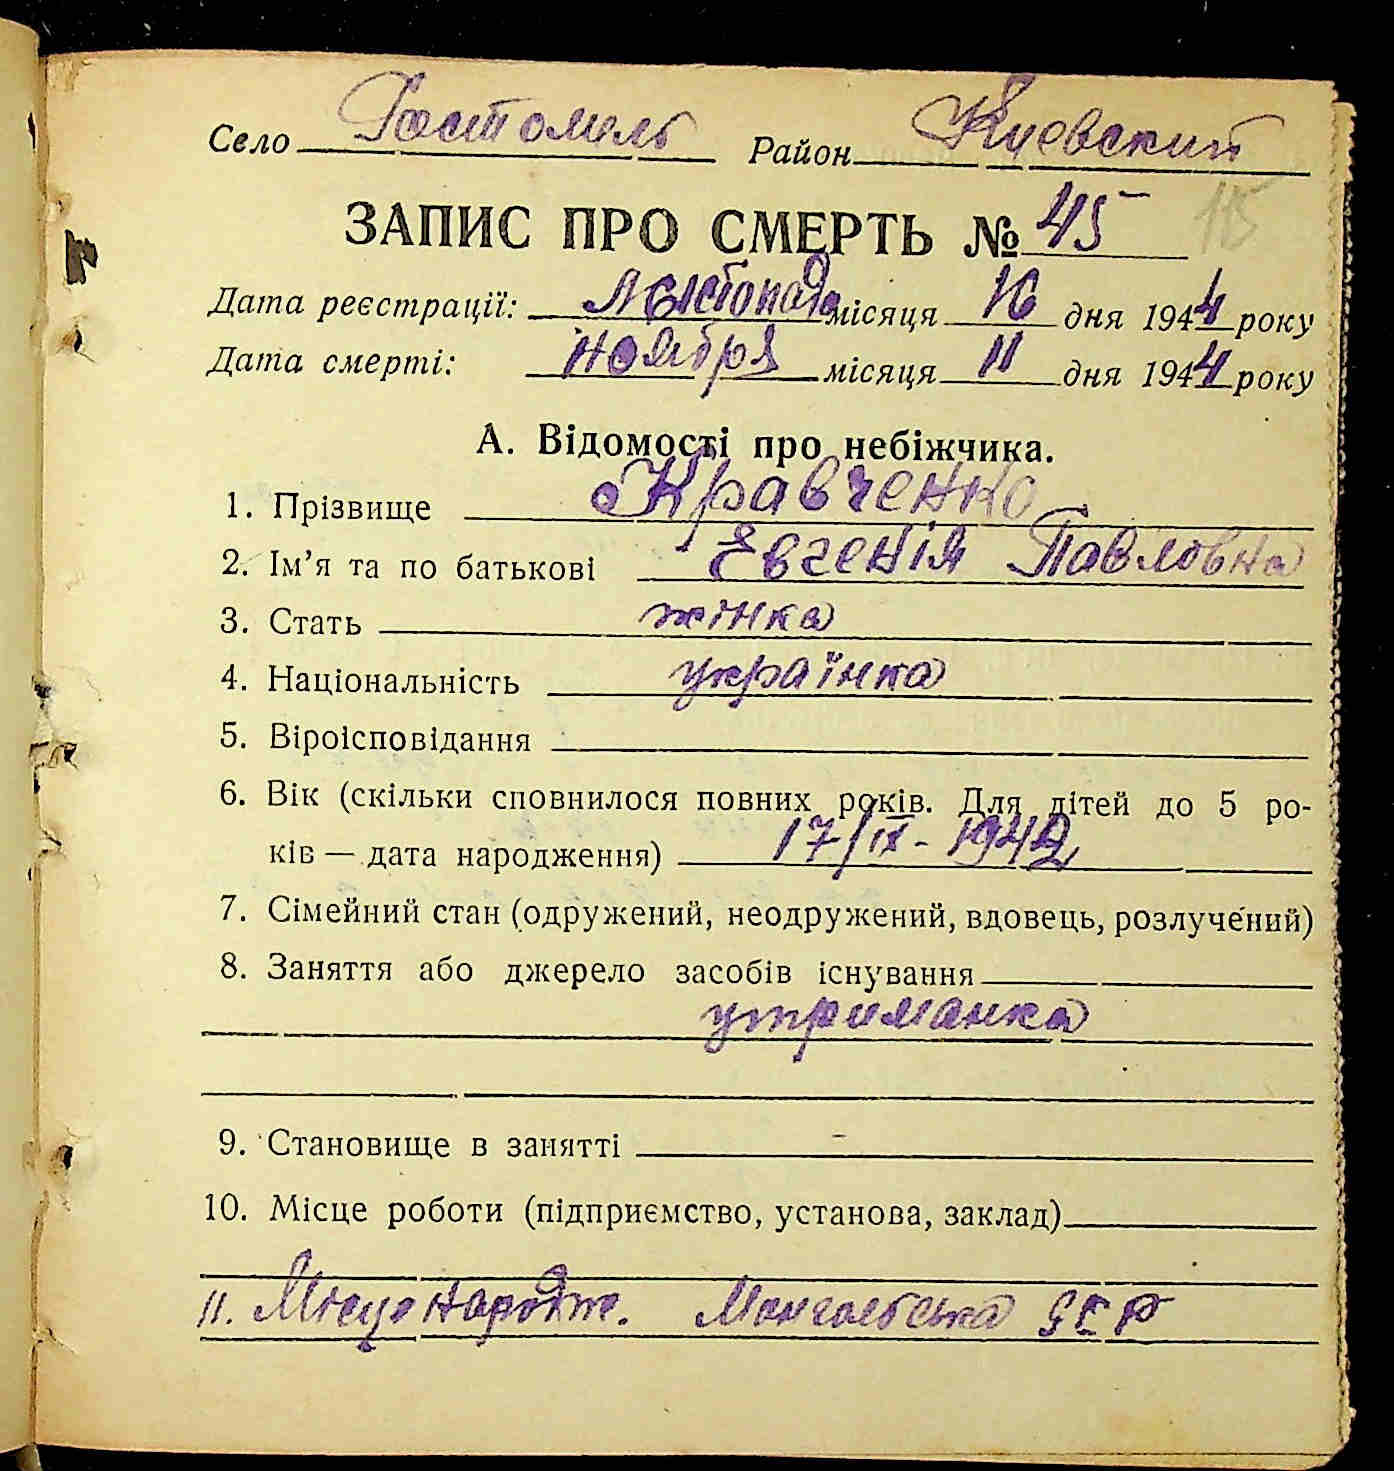 Село Гостомель Район Киевский
ЗАПИС ПРО СМЕРТЬ № 45 115
Дата реєстрації: Листопада місяця 16 дня 1944 року
Дата смерті: ноября місяця 11 дня 1944 року
А. Відомості про небіжчика.
1. Прізвище Кравченко
2. Ім’я та по батькові Євгенія Павловна
3. Стать жінка
4. Національність українка
5. Віроісповідання
6. Вік (скільки сповнилося повних років. Для дітей до 5 ро-
ків — дата народження) 17/IX - 1942
7. Сімейний стан (одружений, неодружений, вдовець, розлучений)
8. Заняття або джерело засобів існування
утриманка
9. Становище в занятті –
10. Місце роботи (підприємство, установа, заклад)
11. Місце народже. Монгольська